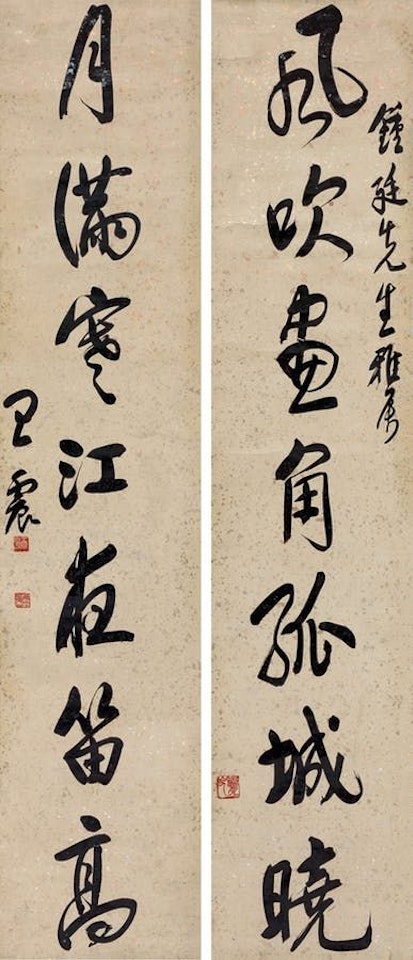 鐘廷先生雅屬
風吹畫角孤城曉
月滿寒江夜笛高
王震